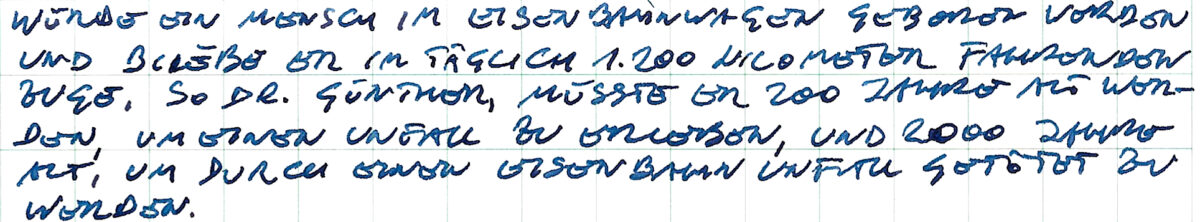 WÜRDE EIN MENSCH IM EISENBAHNWAGEN GEBOREN WERDEN
UND BLIEBE ER IM TÄGLICH 1.200 KILOMETER FAHRENDEN
ZUGE, SO DR. GÜNTHER, MÜSSTE ER 200 JAHRE ALT WER-
DEN, UM EINEN UNFALL ZU ERLEBEN, UND 2000 JAHRE
ALT, UM DURCH EINEN EISENBAHNUNFALL GETÖTET ZU
WERDEN.